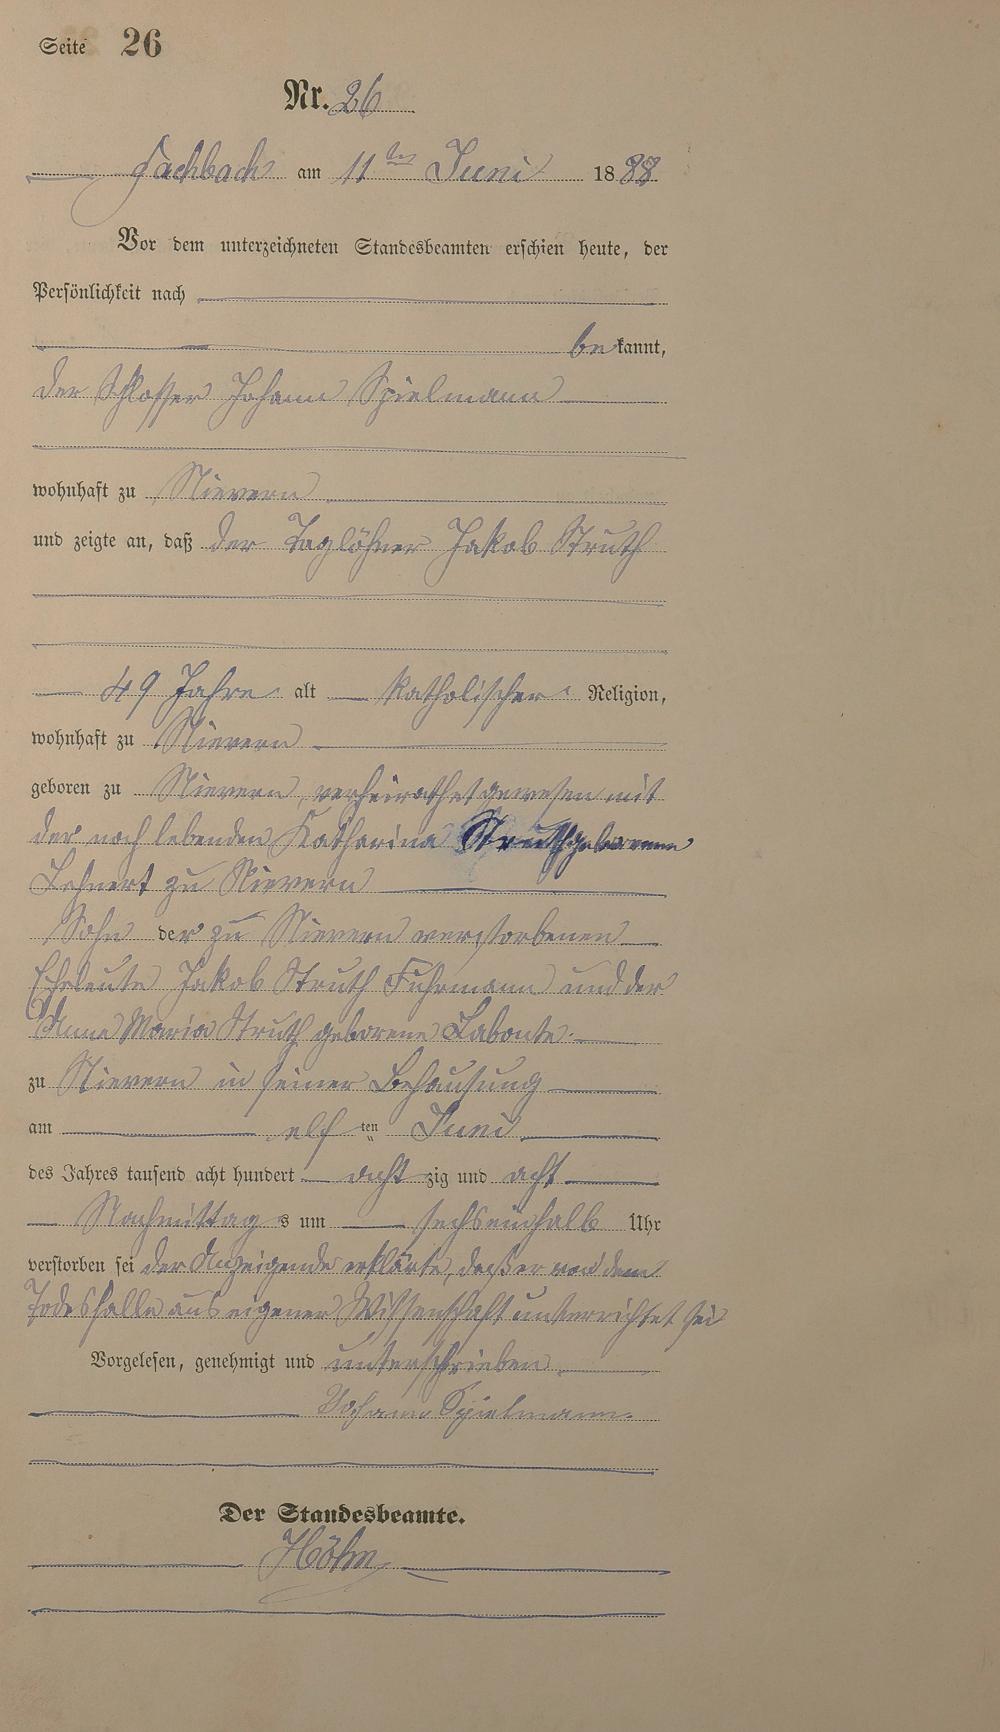 Seite 26
Nr. 26
Fachbach am 11ten Juni 1888
Vor dem unterzeichneten Standesbeamten erschien heute, der
Persönlichkeit nach
bekannt,
der Schlosser Johann Spielmann
wohnhaft zu Nievern
und zeigte an, daß der Taglöhner Jakob Struth
49 Jahre alt katholischer Religion,
wohnhaft zu Nievern
geboren zu Nievern, verheirathet gewesen mit
der noch lebenden Katharina Struth geborenen
Lehnert zu Nievern
Sohn der zu Nievern verstorbenen
Eheleute Jakob Struth Fuhrmann und der
Anna Maria Struth geborene Labonte
zu Nievern in seiner Behausung
am elf ten Juni
des Jahres tausend acht hundert acht zig und acht
Nachmittag s um sechseinhalb Uhr
verstorben sei der Anzeigende erklärte, daß er von dem
Todesfalle aus eigener Wissenschaft unterrichtet sei
Vorgelesen, genehmigt und unterschrieben
Johann Spielmann.
Der Standesbeamte.
Höhn